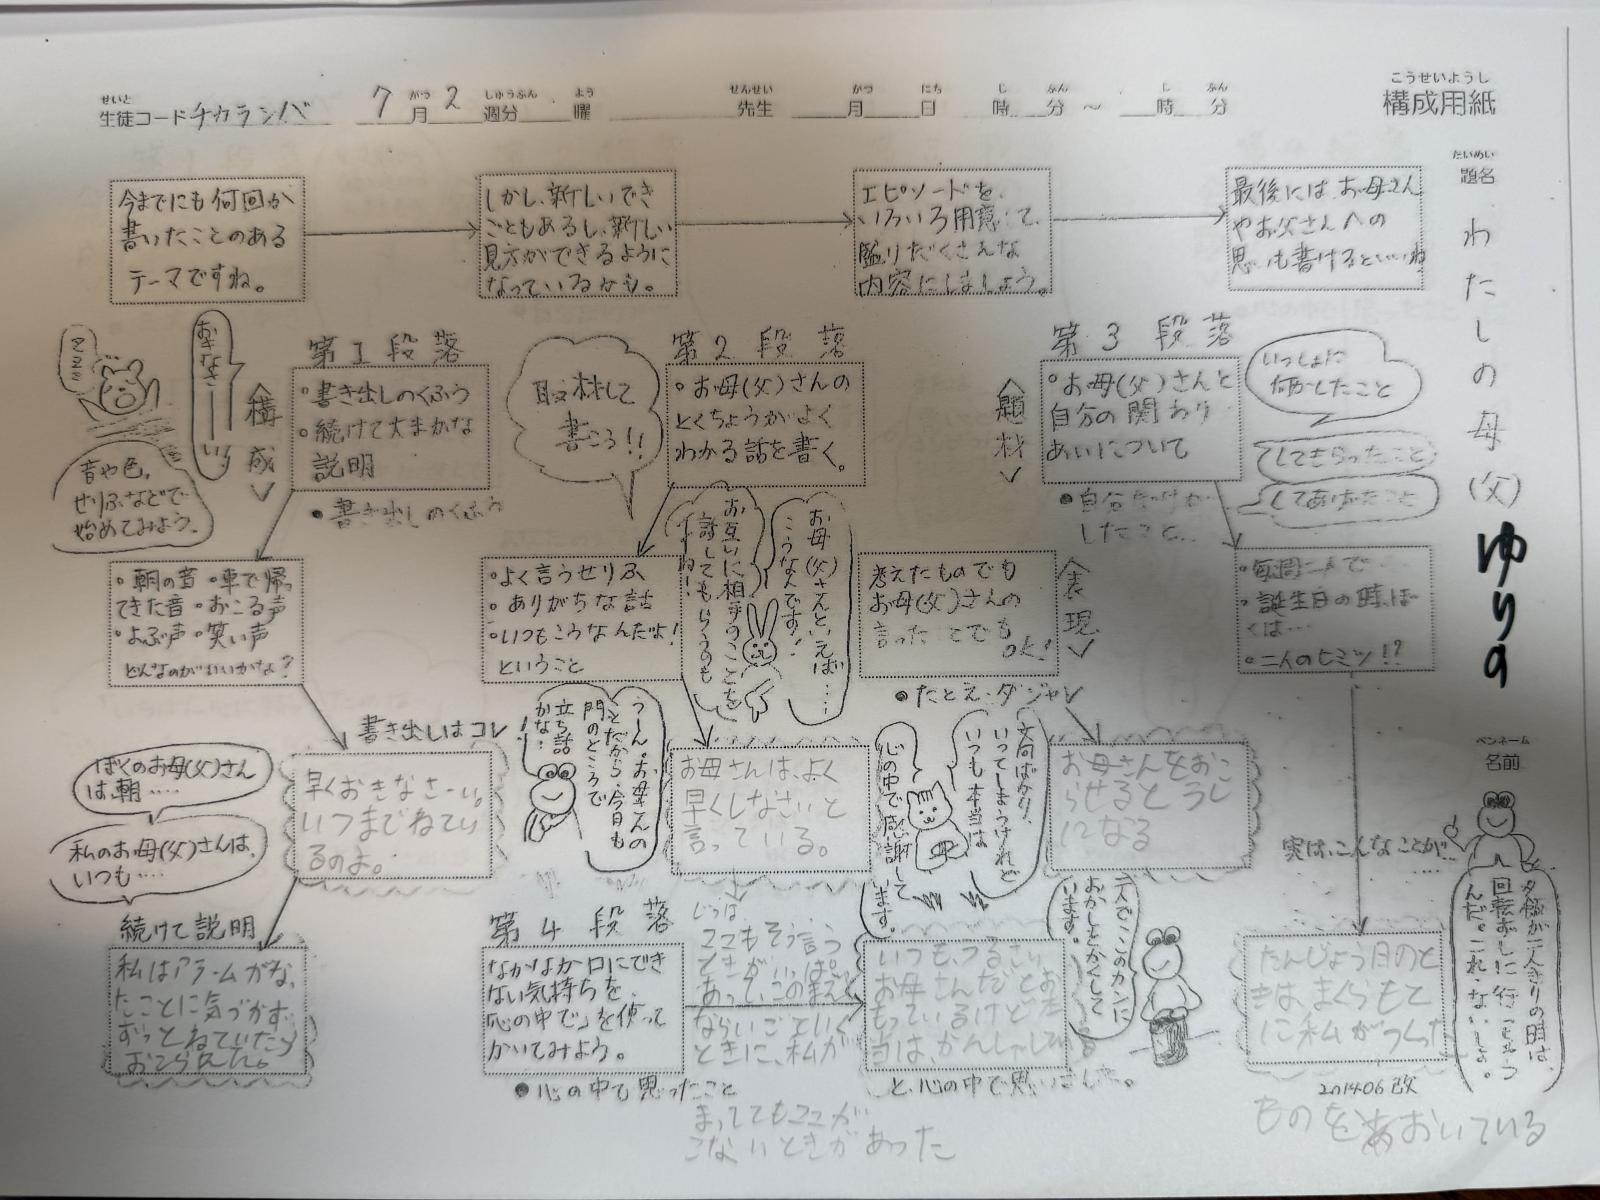 せいと
生徒コード チカラシバ
7月2週分 曜
がつ しゅうぶん よう
先生 月 日 時 分～ 時 分
せんせい がつ にち じ ふん じ ふん
こうせいようし
構成用紙
だいめい
題名
わたしの母(父)
ゆりの
ペンネーム
名前
今までにも何回か
書いたことのある
テーマですね。
しかし、新しいでき
ごともあるし、新しい
見方ができるように
なっているかも。
エピソードを、
いろいろ用意して、
盛りだくさんな
内容にしましょう。
最後には、お母さん
やお父さんへの
思いも書けるといいね
〈構成〉
第1段落
・書き出しのくふう
・続けて大まかな
説明
●書き出しのくふう
音や色、
せりふなどで
始めてみよう。
・朝の音・車で帰っ
てきた音・おこる声
・よぶ声・笑い声
どんなのがいいかな？
書き出しはコレ!
ぼくのお母(父)さん
は、朝‥‥
私のお母(父)さんは、
いつも‥‥
早くおきなさーい。
いつまでねてい
るのよ。
続けて説明
私はアラームがな、
たことに気づかず
ずっとねていたり
取材して
書こう!!
第2段落
・お母(父)さんの
とくちょうがよく
わかる話を書く。
お母(父)さんといえば‥‥
‥こうなんです!
お互いに相手のことを
話してもらうのも
・よく言うせりふ
・ありがちな話
・いつもこうなんだよ!
ということ
うーん。お母さんの
ことだから、今日も
門のところで
立ち話
かな‥
お母さんは、よく
早くしなさいと
言っている。
じつは、
ココもそう言う
まってもココが
こないときがあった
〈題材〉
第3段落
・お母(父)さんと
自分の関わり
あいについて
いっしょに
何かしたこと
してもらったこと
してあげたこと
したこと‥
・誕生日の時、ぼ
くは‥‥
・二人のヒミツ!?
実は、こんなことが‥
夕飯が二人きりの時は、
回転ずしに行っちゃう
んだ。これ、ないしょ。
たんじょう日のと
きは、まくらもと
に私がつくった
ものをおいている
〈表現〉
考えたものでも
お母(父)さんの
言ったことでも
OK!
●たとえ・ダジャレ
お母さんをおこ
らせるとうし
になる
二人でこのカンに
おかしをかくして
います。
文句ばかり、
いってしまうけれど
いつも本当は
心の中で感謝して
います。
第4段落
なかなか口にでき
ない気持ちを、
「心の中で」を使って
かいてみよう。
●心の中で思ったこと
いつも、うるさい
お母さんだとお
もっているけど本
当は、かんしゃしている
と、心の中で思いました。
201406改